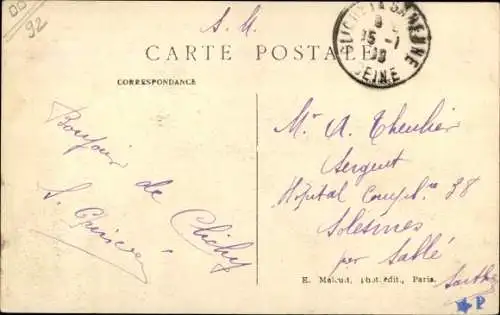 92
S. M.
CARTE POSTALE
CLICHY LA GARENNE
15 - 1
SEINE
CORRESPONDANCE
Bonjour
de Clichy
S.
Mr A. Theulier
Sergent
Hôpital Compl.re 38
Solesmes
par Sablé
Sarthe
E. Malcuit, Phot. édit., Paris.
P